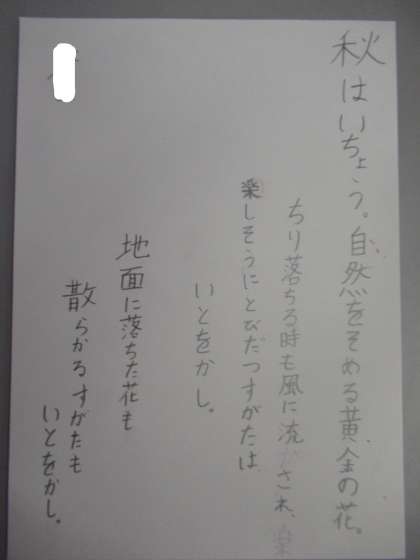 秋はいちょう。自然をそめる黄金の花。
ちり落ちる時も風に流され、
楽しそうにとびだつすがたは
いとをかし。
地面に落ちた花も
散らかるすがたも
いとをかし。